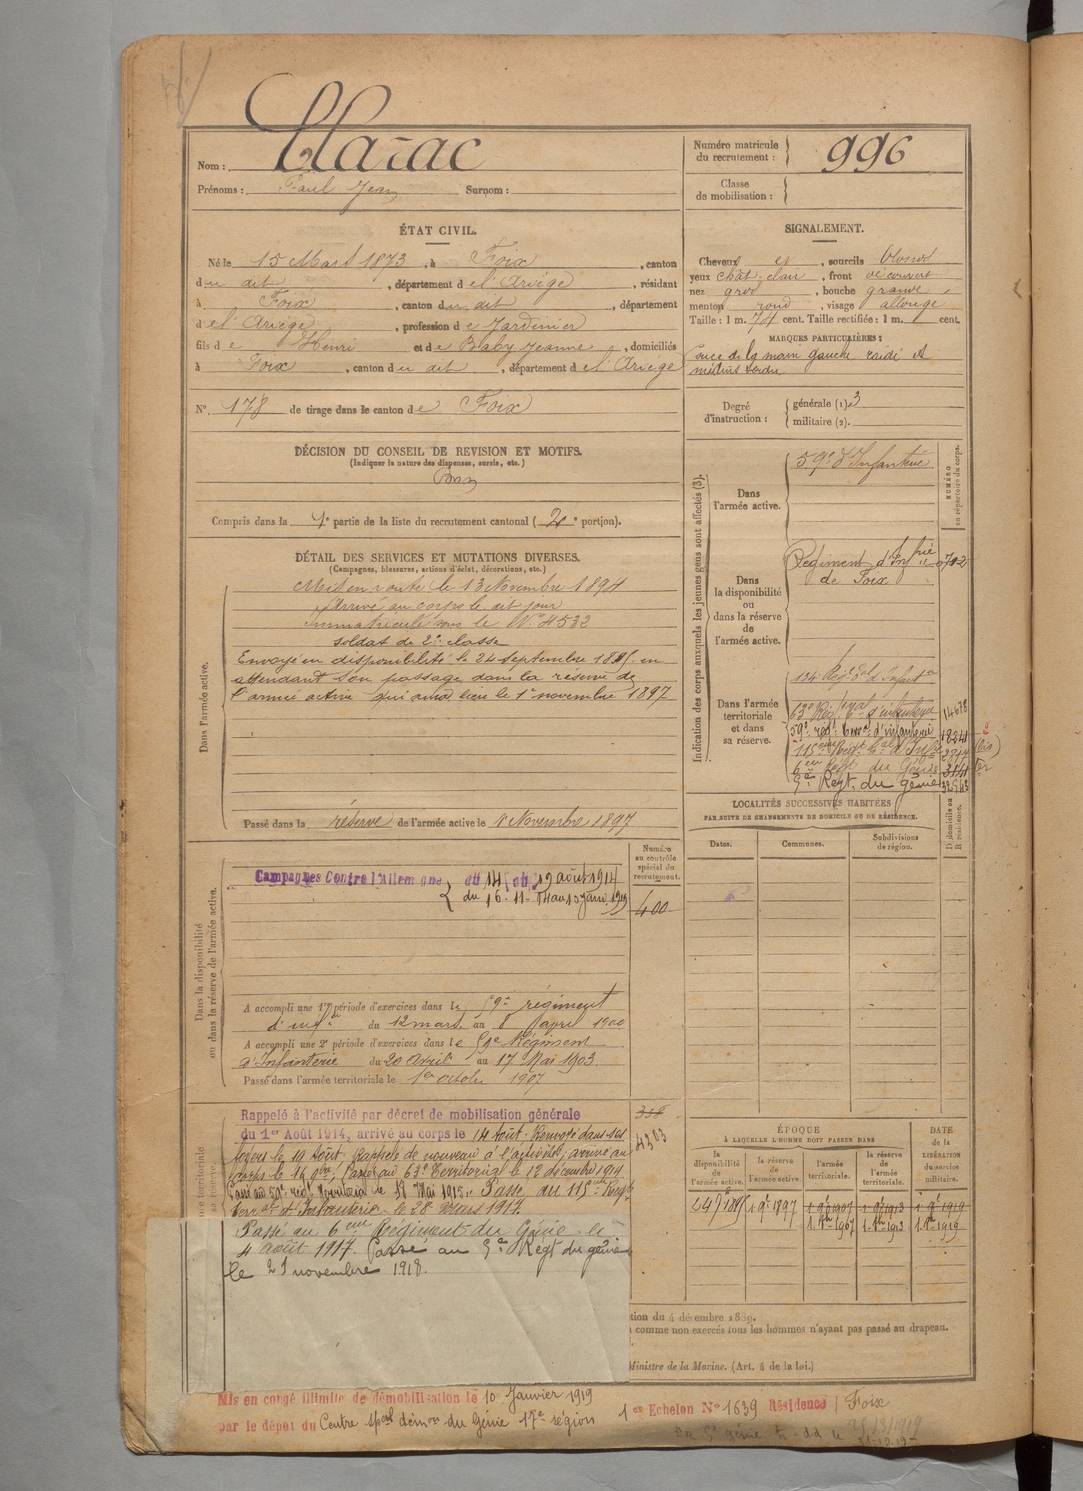 Nom : Clarac
Prénoms : Paul Jean Surnom :
Numéro matricule du recrutement : 996
Classe de mobilisation :
ÉTAT CIVIL.
Né le 15 Mars 1873, à Foix, canton
du dit, département de l'Ariège, résidant
à Foix, canton du dit, département
de l'Ariège, profession de Jardinier
fils de Henri et de Baby Jeanne, domiciliés
à Foix, canton du dit, département de l'Ariège
N° 178 de tirage dans le canton de Foix
SIGNALEMENT.
Cheveux et, sourcils
yeux chât. clair, front découvert
nez gros, bouche grande,
menton rond, visage allongé
Taille : 1 m. 74 cent. Taille rectifiée : 1 m. cent.
MARQUES PARTICULIÈRES :
Pouce de la main gauche raidi et
médius tordu
Degré d'instruction : générale (1). 3
militaire (2).
DÉCISION DU CONSEIL DE REVISION ET MOTIFS.
(Indiquer la nature des dispenses, sursis, etc.)
Bon
Compris dans la 1e partie de la liste du recrutement cantonal ( 2e portion).
DÉTAIL DES SERVICES ET MUTATIONS DIVERSES.
(Campagnes, blessures, actions d'éclat, décorations, etc.)
Dans l'armée active.
Mis en route le 13 Novembre 1894
Arrivé au corps le dit jour
Immatriculé sous le N° 4532
soldat de 2e classe
Envoyé en disponibilité le 24 septembre 1895 en
attendant son passage dans la réserve de
l'armée active qui aura lieu le 1er novembre 1897
Passé dans la réserve de l'armée active le 1er Novembre 1897
Indication des corps auxquels les jeunes gens sont affectés (3).
NUMÉRO au répertoire du corps.
Dans l'armée active.
59e d'Infanterie
Dans la disponibilité ou dans la réserve de l'armée active.
Régiment d'Infrie
de Foix
Dans l'armée territoriale et dans sa réserve.
134e Régt d'Infrie
63e Régt d'infanterie 14678
59e régt Terral d'infanterie
115eme Regt d'Infie
6eme Regt du Génie
5e Régt. du génie
LOCALITÉS SUCCESSIVES HABITÉES
PAR SUITE DE CHANGEMENTS DE DOMICILE OU DE RÉSIDENCE.
Dates. Communes. Subdivisions de région. D domicile ou R résidence.
Dans la disponibilité ou dans la réserve de l'armée active.
Numéro au contrôle spécial du recrutement.
Campagnes Contre l'Allemagne du 14 au 19 août 1914
du 16-11-14 au 10 janv. 1919
400
A accompli une 1re période d'exercices dans le 59e régiment
d'inf. du 12 mars au 8 avril 1900
A accompli une 2e période d'exercices dans le 59e Régiment
d'Infanterie du 20 avril au 17 Mai 1903.
Passé dans l'armée territoriale le 1er octobre 1907
Rappelé à l'activité par décret de mobilisation générale
du 1er Août 1914, arrivé au corps le 14 Août. Renvoyé dans ses
foyers le 19 Août. Rappelé de nouveau à l'activité, arrivé au
corps le 16 9bre, Passé au 63e Territorial le 12 décembre 1914
Passé au 59e régt territorial le 18 Mai 1915. Passé au 115eme Regt
Terral d'Infanterie le 28 mars 1917.
Passé au 6eme Régiment du Génie le
4 août 1917. Passé au 5e Régt du génie
le 21 novembre 1918.
4303
ÉPOQUE
À LAQUELLE L'HOMME DOIT PASSER DANS
DATE de la LIBÉRATION du service militaire.
la disponibilité de l'armée active. la réserve de l'armée active. l'armée territoriale. la réserve de l'armée territoriale.
24 7bre 1895 1 9bre 1897 1 9bre 1907 1 9bre 1913 1 9bre 1919
1.8bre 1907 1.8bre 1913 1.8bre 1919
tion du 4 décembre 1889.
comme non exercés tous les hommes n'ayant pas passé au drapeau.
Ministre de la Marine. (Art. 4 de la loi.)
Mis en congé illimité de démobilisation le 10 Janvier 1919
par le dépôt du Centre spécal démon du Génie 17e région 1er Echelon N° 1639 Résidence Foix